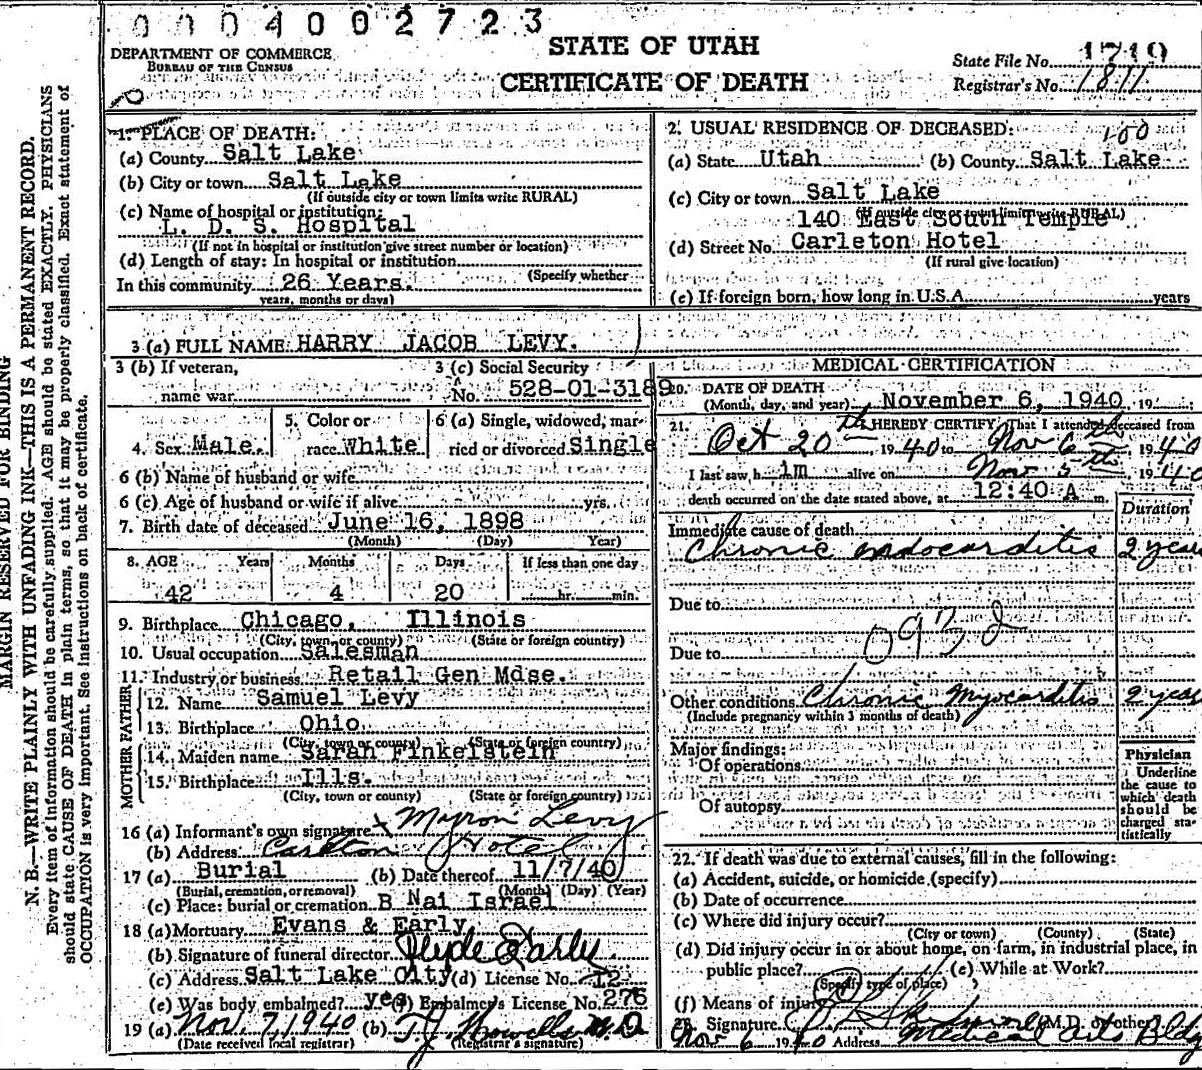 0004002723
DEPARTMENT OF COMMERCE
BUREAU OF THE CENSUS
STATE OF UTAH
CERTIFICATE OF DEATH
State File No. 1719
Registrar's No. 1811
MARGIN RESERVED FOR BINDING
N. B.—WRITE PLAINLY WITH UNFADING INK—THIS IS A PERMANENT RECORD.
Every item of information should be carefully supplied. AGE should be stated EXACTLY. PHYSICIANS
should state CAUSE OF DEATH in plain terms, so that it may be properly classified. Exact statement of
OCCUPATION is very important. See instructions on back of certificate.
1. PLACE OF DEATH:
(a) County Salt Lake
(b) City or town Salt Lake
(If outside city or town limits write RURAL)
(c) Name of hospital or institution:
L. D. S. Hospital
(If not in hospital or institution give street number or location)
(d) Length of stay: In hospital or institution
(Specify whether
In this community 26 Years.
years, months or days)
2. USUAL RESIDENCE OF DECEASED:
100
(a) State Utah (b) County Salt Lake
(c) City or town Salt Lake
(If outside city or town limits write RURAL)
140 East South Temple
(d) Street No. Carleton Hotel
(If rural give location)
(e) If foreign born, how long in U.S.A. years
3 (a) FULL NAME HARRY JACOB LEVY.
3 (b) If veteran,
name war
3 (c) Social Security
No. 528-01-3189
4. Sex Male.
5. Color or
race White
6 (a) Single, widowed, mar-
ried or divorced Single
6 (b) Name of husband or wife
6 (c) Age of husband or wife if alive yrs.
7. Birth date of deceased June 16, 1898
(Month) (Day) Year)
8. AGE Years Months Days If less than one day
42 4 20 hr. min.
9. Birthplace Chicago, Illinois
(City, town, or county) (State or foreign country)
10. Usual occupation Salesman
11. Industry or business Retail Gen Mdse.
FATHER
12. Name Samuel Levy
13. Birthplace Ohio
(City, town or county) (State or foreign country)
MOTHER
14. Maiden name Sarah Finkelstein
15. Birthplace Ills.
(City, town or county) (State or foreign country)
16 (a) Informant's own signature Myron Levy
(b) Address Carlton Hotel
17 (a) Burial (b) Date thereof 11/7/40
(Burial, cremation, or removal) (Month) (Day) (Year)
(c) Place: burial or cremation B Nai Israel
18 (a) Mortuary Evans & Early
(b) Signature of funeral director Clyde Early
(c) Address Salt Lake City (d) License No. 12
(e) Was body embalmed? yes (f) Embalmer's License No. 276
19 (a) Nov. 7, 1940 (b) M.D.
(Date received local registrar) (Registrar's signature)
MEDICAL CERTIFICATION
20. DATE OF DEATH
(Month, day, and year) November 6, 1940 19
21. I HEREBY CERTIFY That I attended deceased from
Oct 20th 1940 to Nov 6th, 1940
I last saw him alive on Nov 5th 1940
death occurred on the date stated above, at 12:40 A m.
Duration
Immediate cause of death
Chronic endocarditis 2 years
Due to
Due to
Other conditions Chronic Myocarditis 2 years
(Include pregnancy within 3 months of death)
Major findings:
Of operations
Of autopsy
Physician
Underline
the cause to
which death
should be
charged sta-
tistically
22. If death was due to external causes, fill in the following:
(a) Accident, suicide, or homicide (specify)
(b) Date of occurrence
(c) Where did injury occur?
(City or town) (County) (State)
(d) Did injury occur in or about home, on farm, in industrial place, in
public place? (e) While at Work?
(Specify type of place)
(f) Means of injury
23. Signature (M.D. or other)
Nov 6 1940 Address Medical Arts Bldg